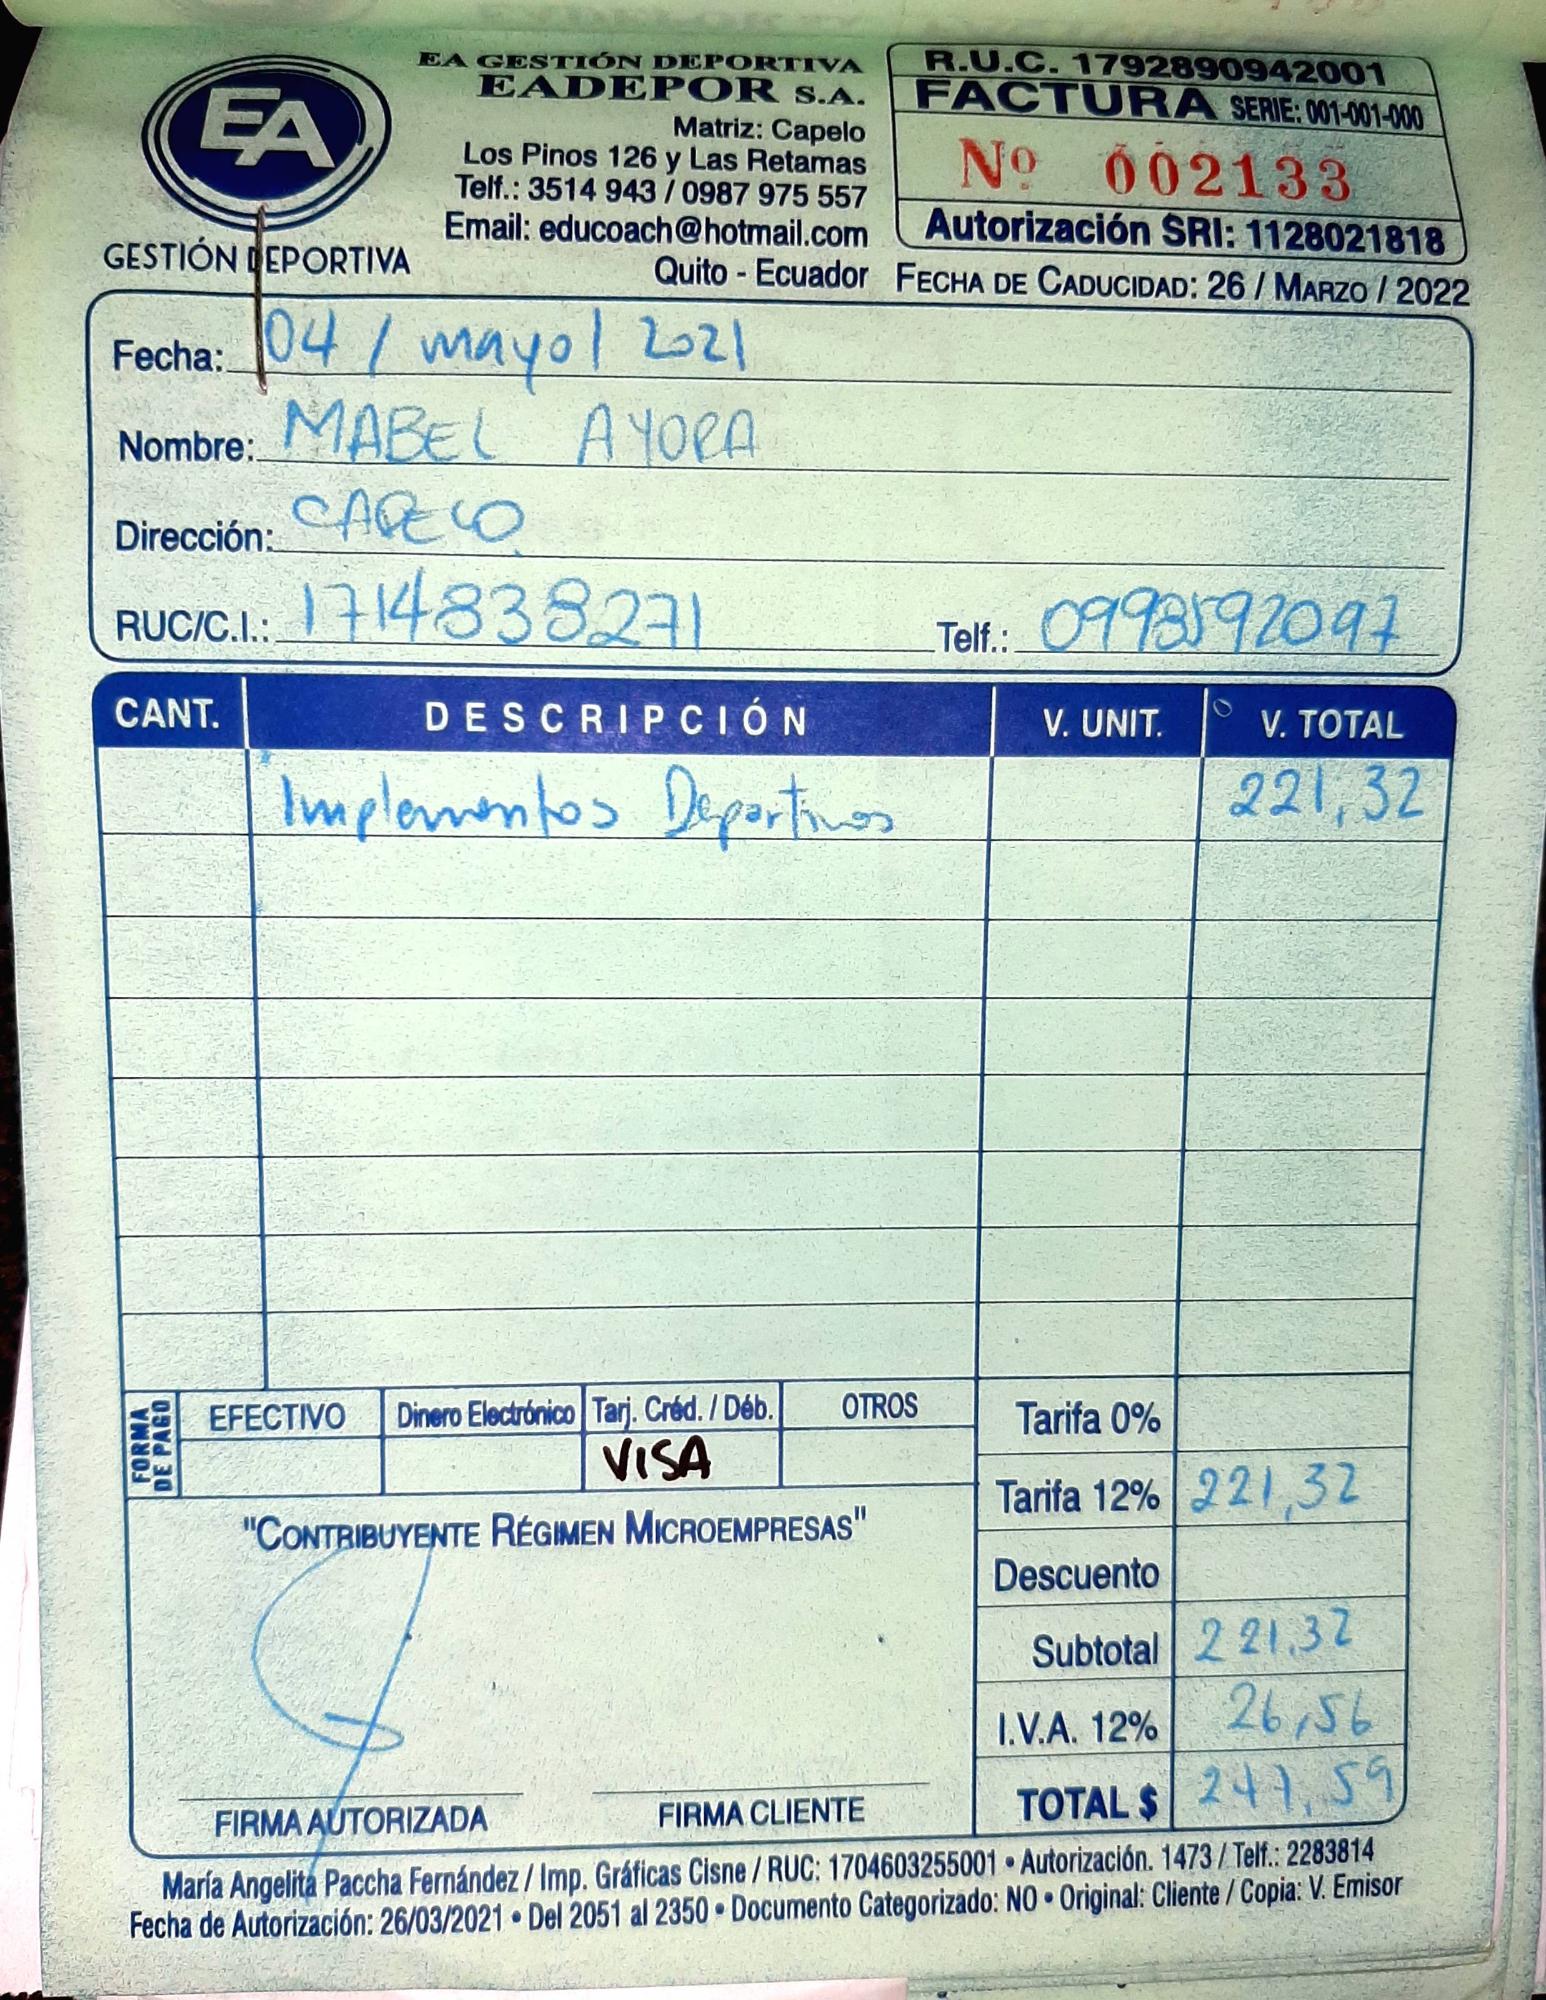 EA
GESTIÓN DEPORTIVA
EA GESTIÓN DEPORTIVA
EADEPOR S.A.
Matriz: Capelo
Los Pinos 126 y Las Retamas
Telf.: 3514 943 / 0987 975 557
Email: educoach@hotmail.com
Quito - Ecuador
R.U.C. 1792890942001
FACTURA SERIE: 001-001-000
Nº 002133
Autorización SRI: 1128021818
FECHA DE CADUCIDAD: 26 / MARZO / 2022
Fecha: 04 / mayo / 2021
Nombre: MABEL AYORA
Dirección: CAPELO
RUC/C.I.: 1714838271 Telf.: 0998592097
CANT. DESCRIPCIÓN V. UNIT. V. TOTAL
Implementos Deportivos 221,32
FORMA DE PAGO
EFECTIVO Dinero Electrónico Tarj. Créd. / Déb. OTROS
VISA
Tarifa 0%
Tarifa 12% 221,32
Descuento
Subtotal 221.32
I.V.A. 12% 26,56
TOTAL $
"CONTRIBUYENTE RÉGIMEN MICROEMPRESAS"
FIRMA AUTORIZADA FIRMA CLIENTE
María Angelita Paccha Fernández / Imp. Gráficas Cisne / RUC: 1704603255001 • Autorización. 1473 / Telf.: 2283814
Fecha de Autorización: 26/03/2021 • Del 2051 al 2350 • Documento Categorizado: NO • Original: Cliente / Copia: V. Emisor